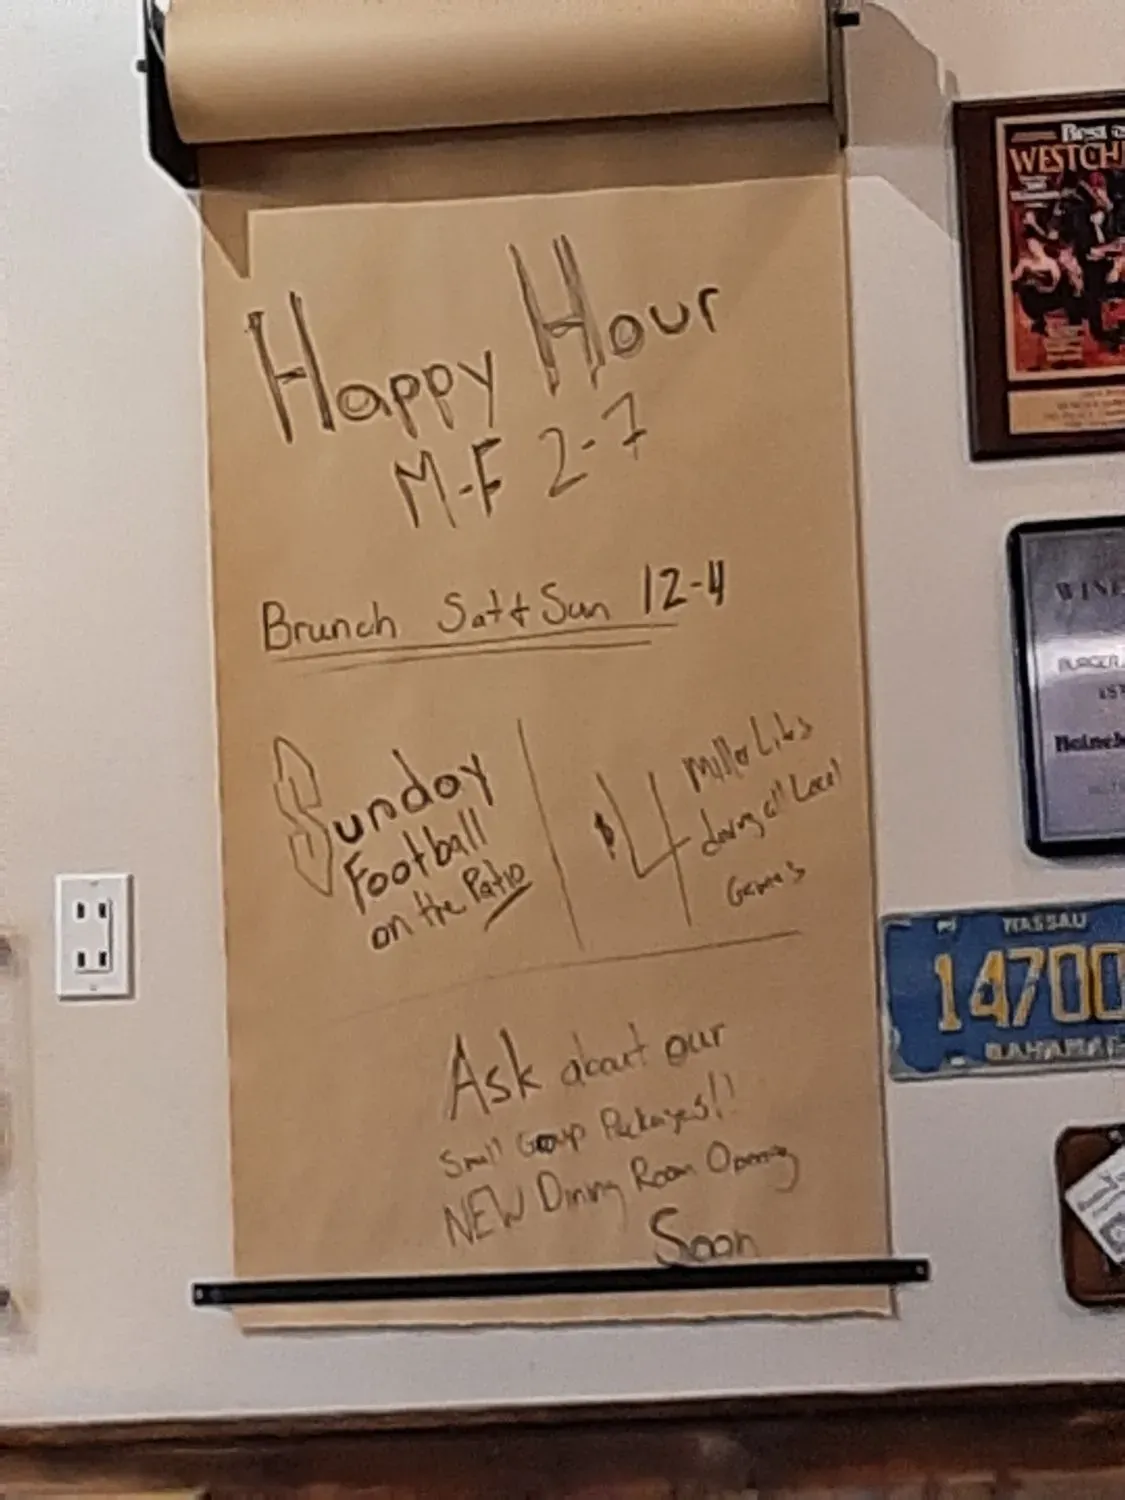 Happy Hour
M-F 2-7
Brunch Sat + Sun 12-4
Sunday
Football
on the Patio
$4
Miller Lites
during all Local
Games
Ask about our
Small Group Packages!!
NEW Dining Room Opening
Soon
Best of
WESTCH
WINE
BURGER
EST
Heinek
NASSAU
14700
BAHAMAS